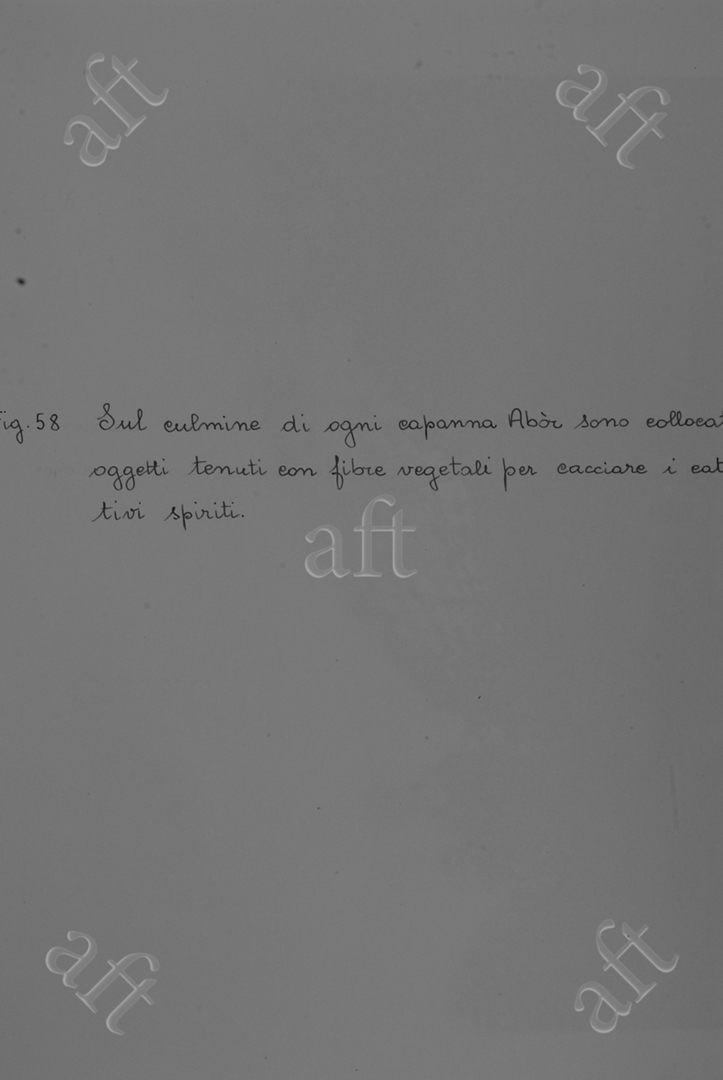 aft aft
ig. 58 Sul culmine di ogni capanna Abòr sono collocat
oggetti tenuti con fibre vegetali per cacciare i cat
tivi spiriti.
aft
aft aft